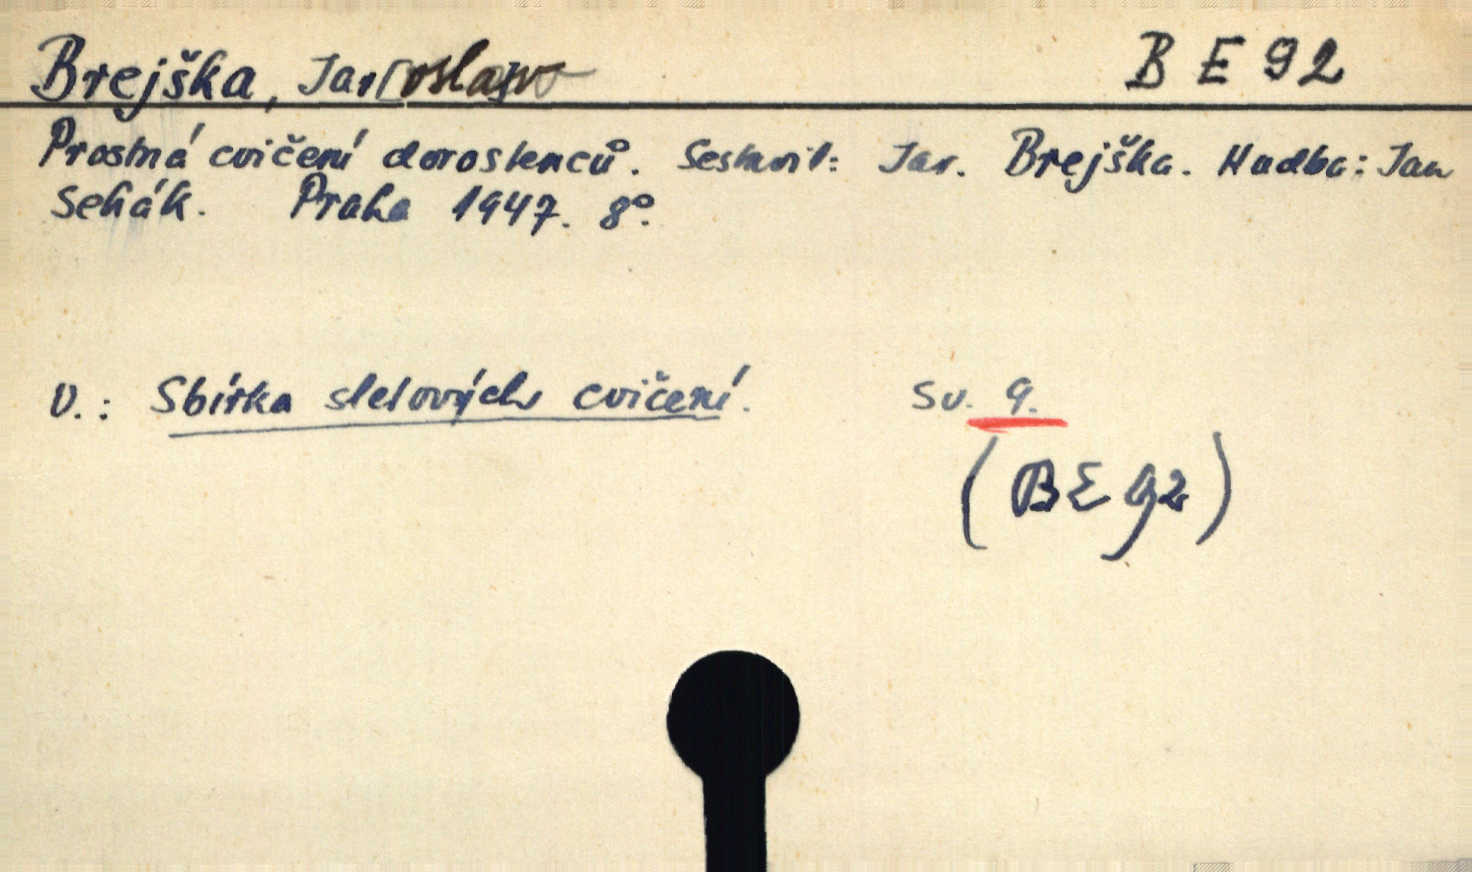 Brejška, Jar[oslav] B E 92
Prostná cvičení dorostenců. Sestavil: Jar. Brejška. Hudba: Jan
Sehák. Praha 1947. 8°.
V.: Sbírka sletových cvičení. Sv. 9.
(BE 92)